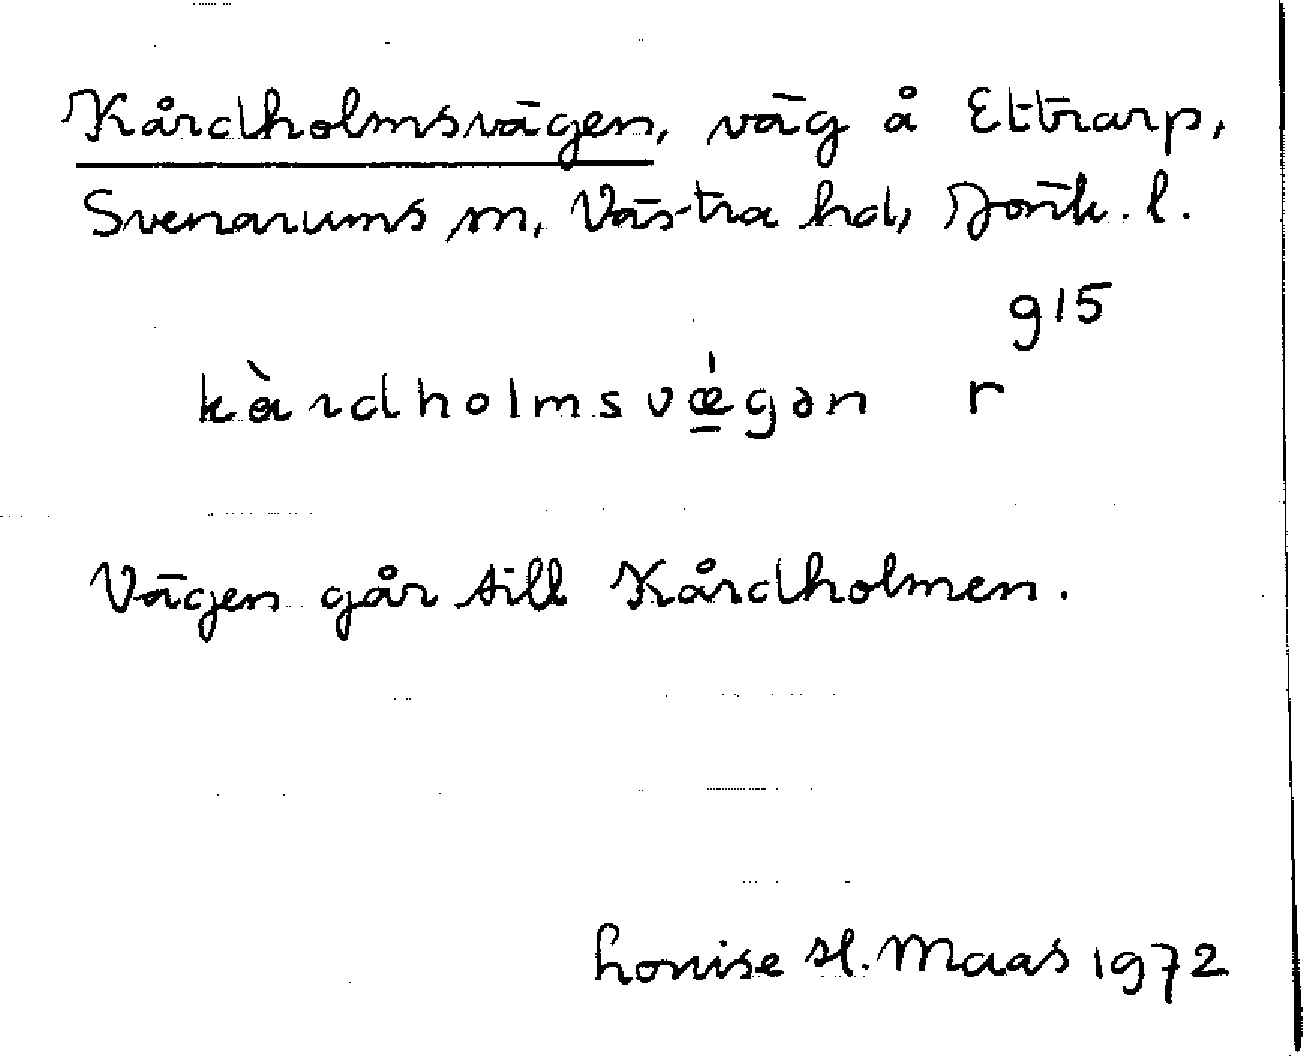 Kårdholmsvägen, väg å Ettrarp,
Svenarums sn, Västra hd, Jönk. l.
g15
kàrdholmsvǽgən r
Vägen går till Kårdholmen.
Louise H. Maas 1972